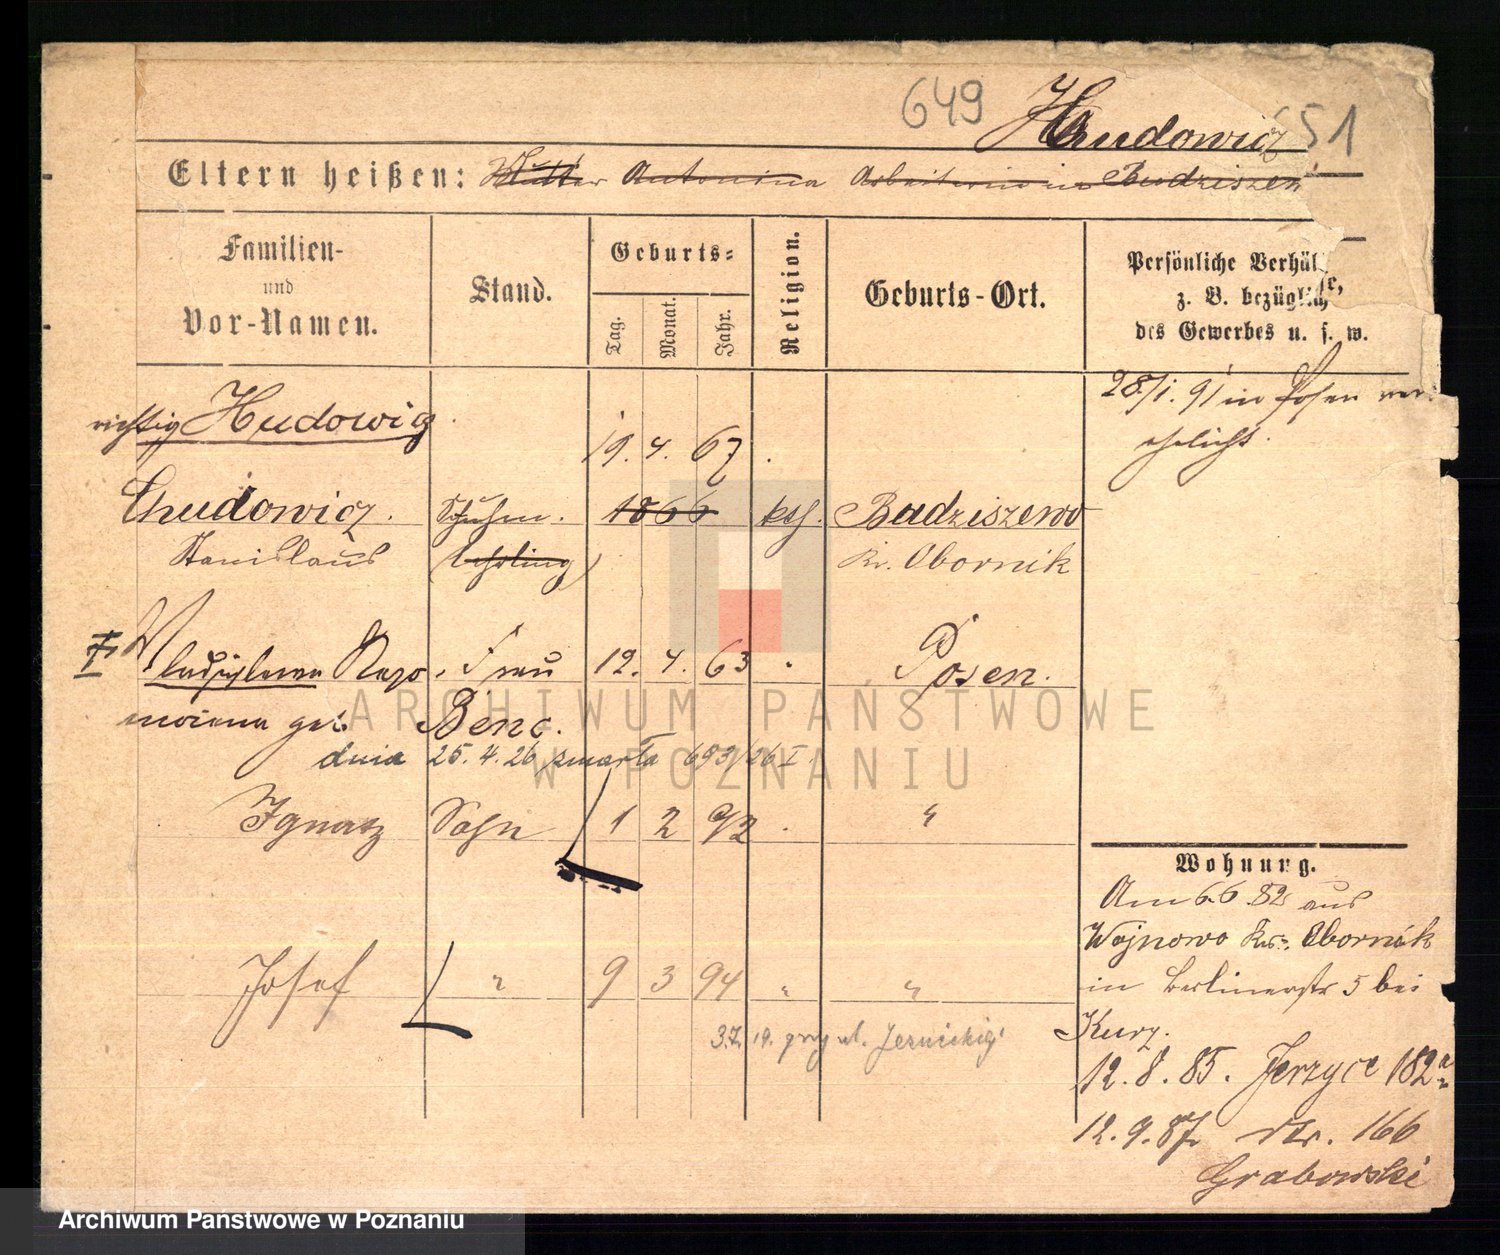 649 Hudowicz 51
Eltern heißen: Mutter Antonina Arbeiterin in Budziszew
Familien- und Vor-Namen.
Stand.
Geburts-
Tag. Monat. Jahr.
Religion.
Geburts-Ort.
Persönliche Verhäl
z. B. bezüglich
des Gewerbes u. s. w.
richtig Hudowicz
19. 4. 67
28/1. 91 in Posen ver
ehelicht.
Chudowicz. Schuhm. 1866 kth. Budziszewo
Stanislaus (Lehrling) Kr. Obornik
Wladislawa Frau 12. 4. 63 " Posen.
geb. Benc.
dnia 25. 4. 26 zmarła 693/26 I.
Ignatz Sohn 1 2 92 "
Josef " 9 3 94 " "
3.7. 19. przy ul.
Wohnung.
Am 6.6.82 aus
Wojnowo Kr. Obornik
in Berlinerstr 5 bei
Kurz.
12. 8. 85. Jerzyce 182
12. 9. 87. dto. 166
Grabowski
ARCHIWUM PAŃSTWOWE
W POZNANIU
Archiwum Państwowe w Poznaniu